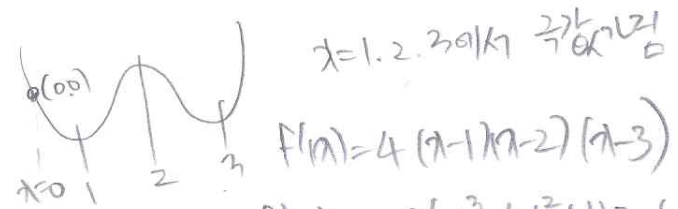 (0,0)
x=0 1 2 3
x=1. 2. 3에서
f'(x)=4(x-1)(x-2)(x-3)